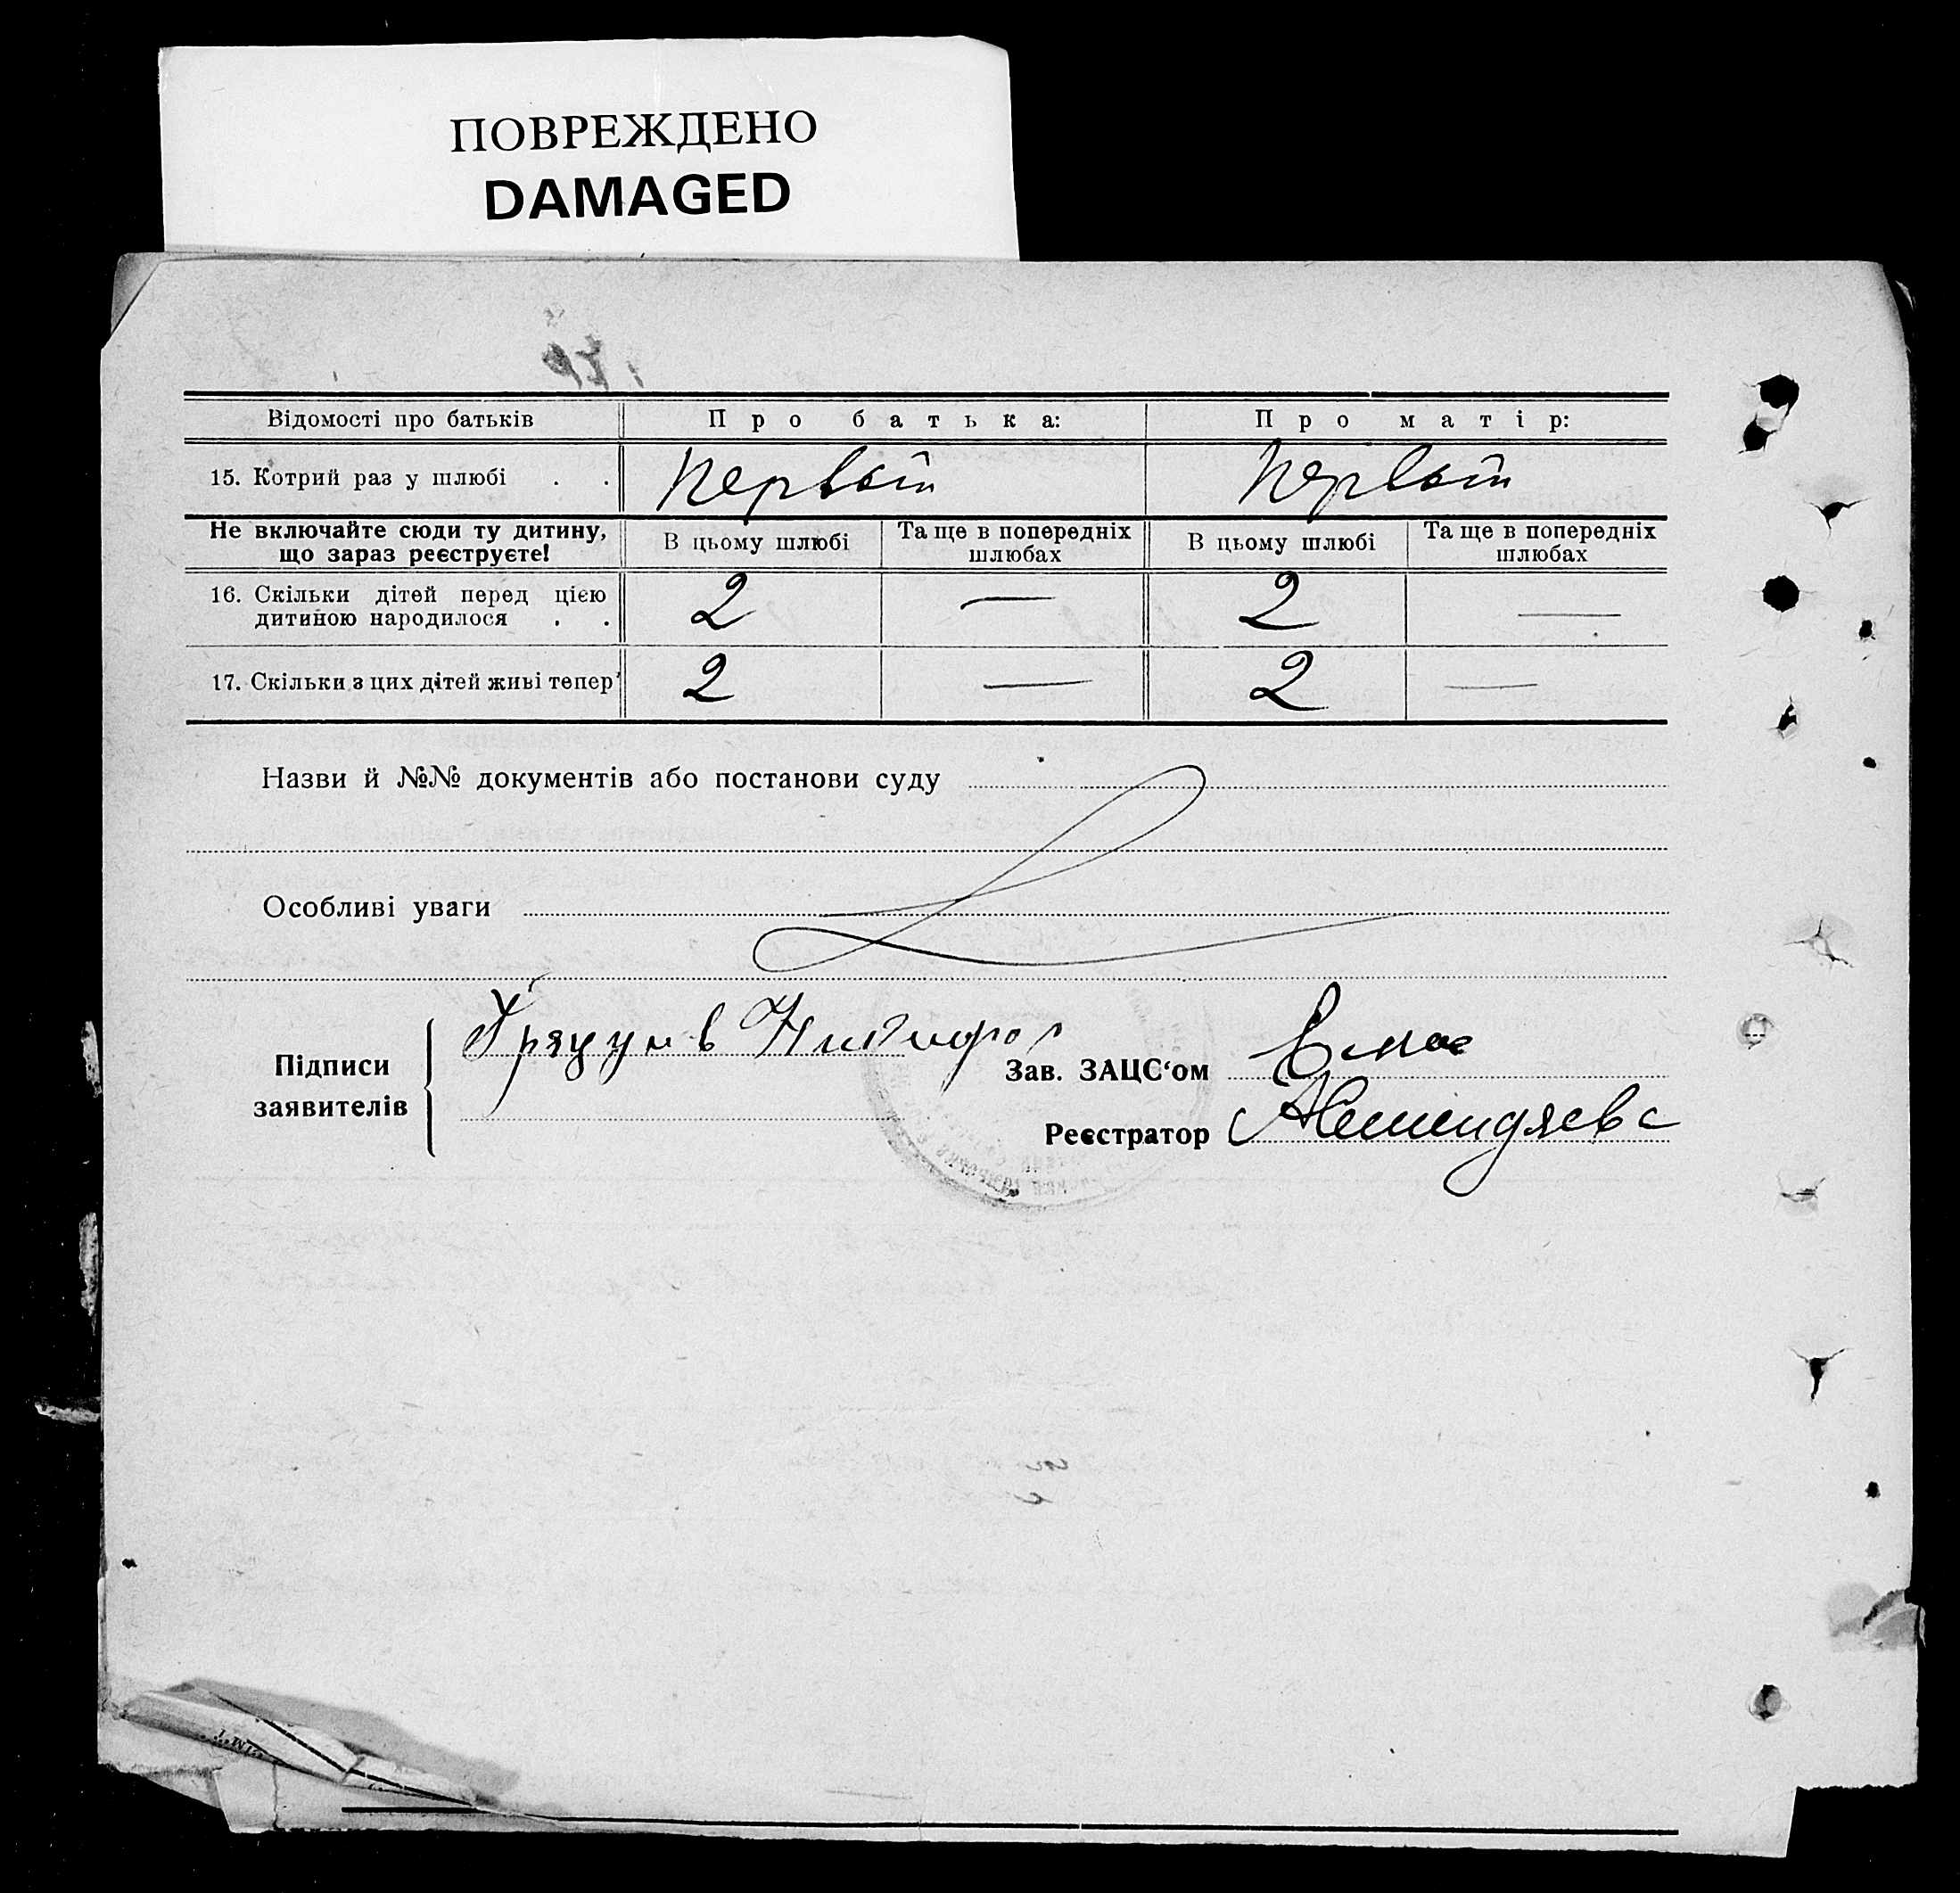 ПОВРЕЖДЕНО
DAMAGED
Відомості про батьків Про батька: Про матір:
15. Котрий раз у шлюбі . . Первый Первый
Не включайте сюди ту дитину, що зараз реєструєте! В цьому шлюбі Та ще в попередніх шлюбах В цьому шлюбі Та ще в попередніх шлюбах
16. Скільки дітей перед цією
дитиною народилося . . 2 — 2 —
17. Скільки з цих дітей живі тепер 2 — 2 —
Назви й №№ документів або постанови суду
Особливі уваги
Підписи
заявителів
Зав. ЗАЦС‘ом
Реєстратор